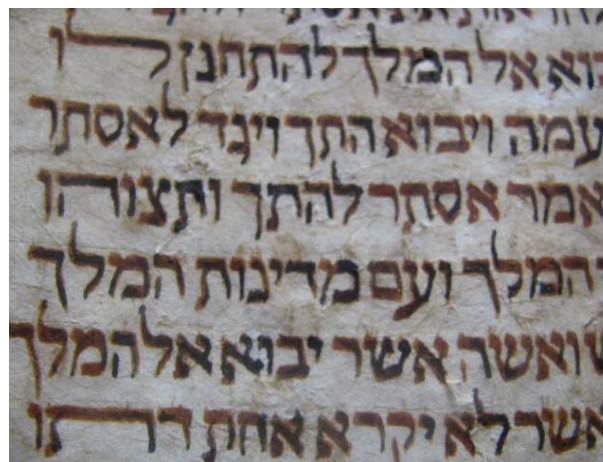 וא אל המלך להתחנן לו
עמה ויבוא התך ויגד לאסתר
אמר אסתר להתך ותצוהו
המלך ועם מדינות המלך
ואשה אשר יבוא אל המלך
אשר לא יקרא אחת דתו